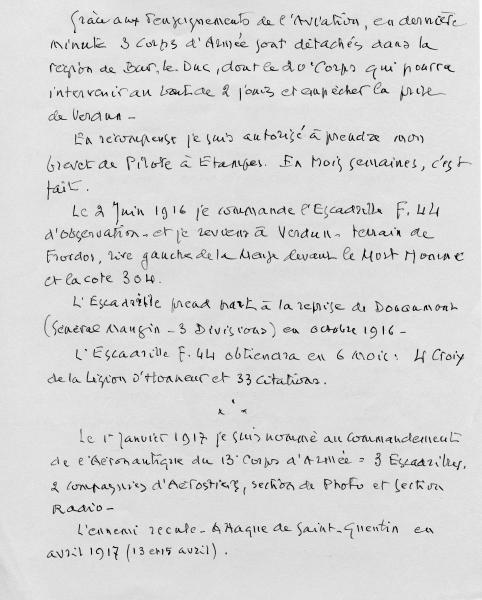 Grâce aux renseignements de l'Aviation, en dernière
minute 3 Corps d'Armée sont détachés dans la
région de Bar, le Duc, dont le 20e Corps qui pourra
intervenir au bout de 2 jours et empêcher la prise
de Verdun -
En récompense je suis autorisé à prendre mon
brevet de Pilote à Etampes. En trois semaines, c'est
fait.
Le 2 Juin 1916 je commande l'Escadrille F. 44
d'observation - et je reviens à Verdun - terrain de
Froidos, rive gauche de la Meuse devant le Mort Homme
et la cote 304.
L'Escadrille prend part à la reprise de Douaumont
(Général Mangin - 3 Divisions) en octobre 1916 -
L'Escadrille F. 44 obtiendra en 6 mois : 4 Croix
de la Légion d'Honneur et 33 citations.
Le 1er Janvier 1917 je suis nommé au commandement
de l'Aéronautique du 13e Corps d'Armée = 3 Escadrilles,
2 compagnies d'Aérostiers, section de Photo et section
Radio -
L'ennemi recule - Attaque de Saint-Quentin en
avril 1917 (13 et 15 avril).